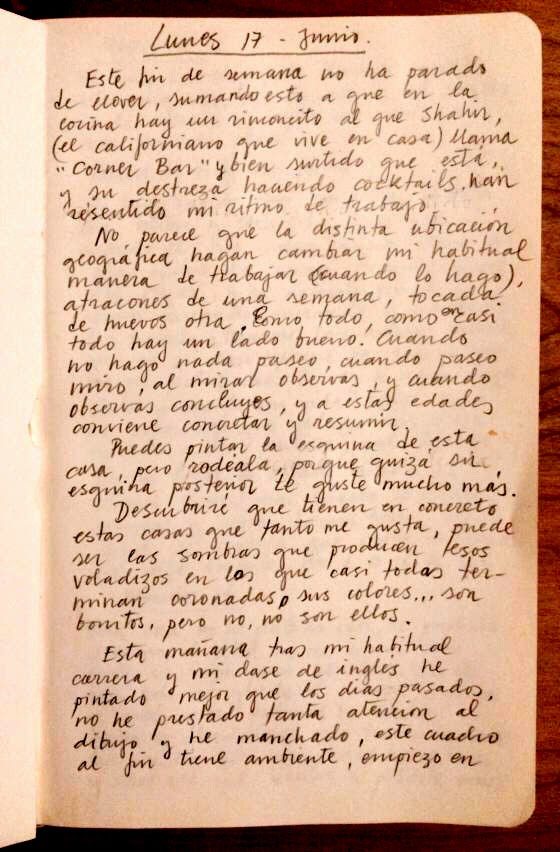 Lunes 17 - Junio.
Este fin de semana no ha parado
de llover, sumando esto a que en la
cocina hay un rinconcito al que Shahir,
(el californiano que vive en casa) llama
"Corner Bar" y bien surtido que está,
y su destreza haciendo cocktails, han
resentido mi ritmo de trabajo.
No parece que la distinta ubicación
geográfica hagan cambiar mi habitual
manera de trabajar (cuando lo hago),
atracones de una semana, tocada
de huevos otra. Como todo, como en casi
todo hay un lado bueno. Cuando
no hago nada paseo, cuando paseo
miro, al mirar observas, y cuando
observas concluyes, y a estas edades
conviene concretar y resumir.
Puedes pintar la esquina de esta
casa, pero rodéala, porque quizá su
esquina posterior te guste mucho más.
Descubriré que tienen en concreto
estas casas que tanto me gusta, puede
ser las sombras que producen esos
voladizos en los que casi todas ter-
minan coronadas, sus colores... son
bonitos, pero no, no son ellos.
Esta mañana tras mi habitual
carrera y mi clase de inglés he
pintado mejor que los días pasados,
no he prestado tanta atención al
dibujo y he manchado, este cuadro
al fin tiene ambiente, empiezo en